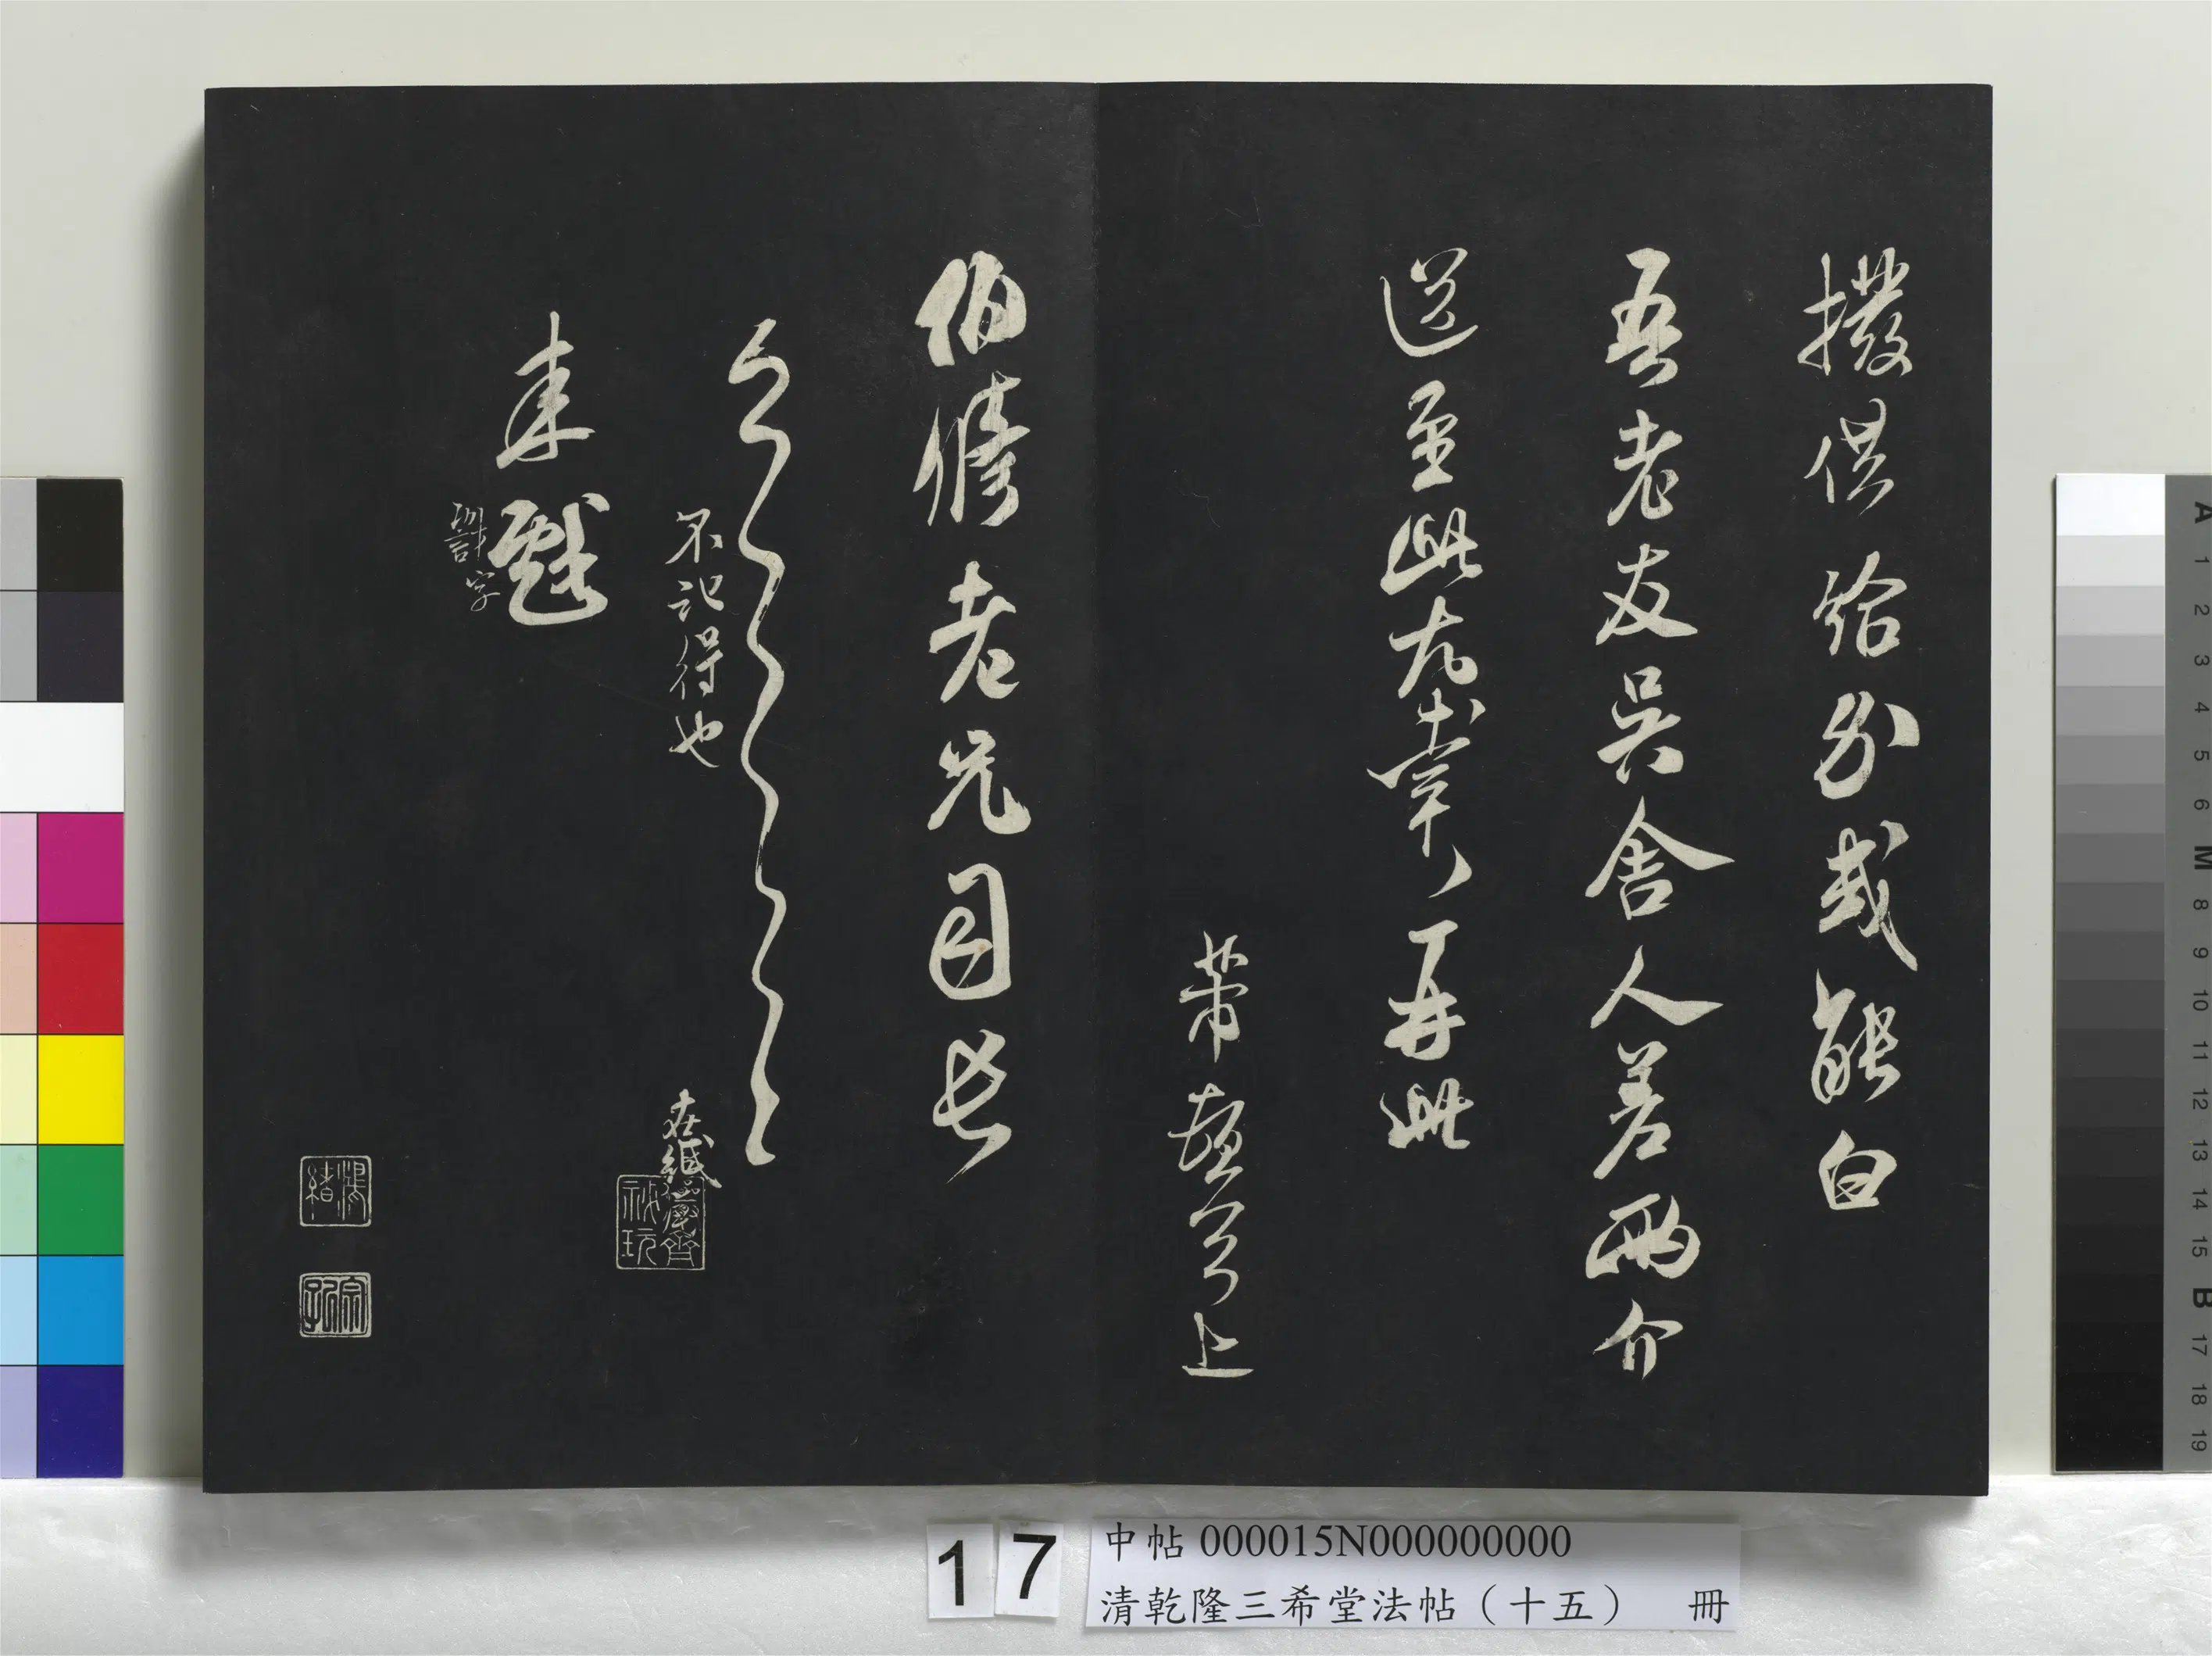 撥供給分或能白
吾老友吳舍人差兩介
送至此尤幸尤幸再此
芾頓首上
伯修老兄司長
不記得也
來戲
訓字
在緘
鴻緒
17
中帖 000015N000000000
清乾隆三希堂法帖（十五） 冊
A 1 2 3 4 5 6 M 8 9 10 11 12 13 14 15 B 17 18 19